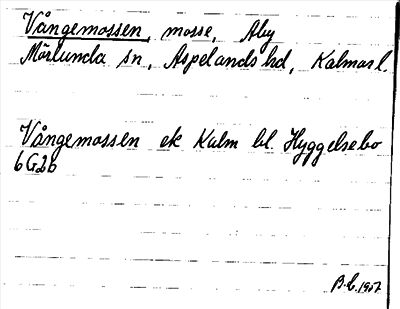 Vångemossen, mosse, Åby
Mörlunda sn, Aspelands hd, Kalmar l.
Vångemossen ek Kalm bl. Hyggelsebo
6G2b
B.L. 1957